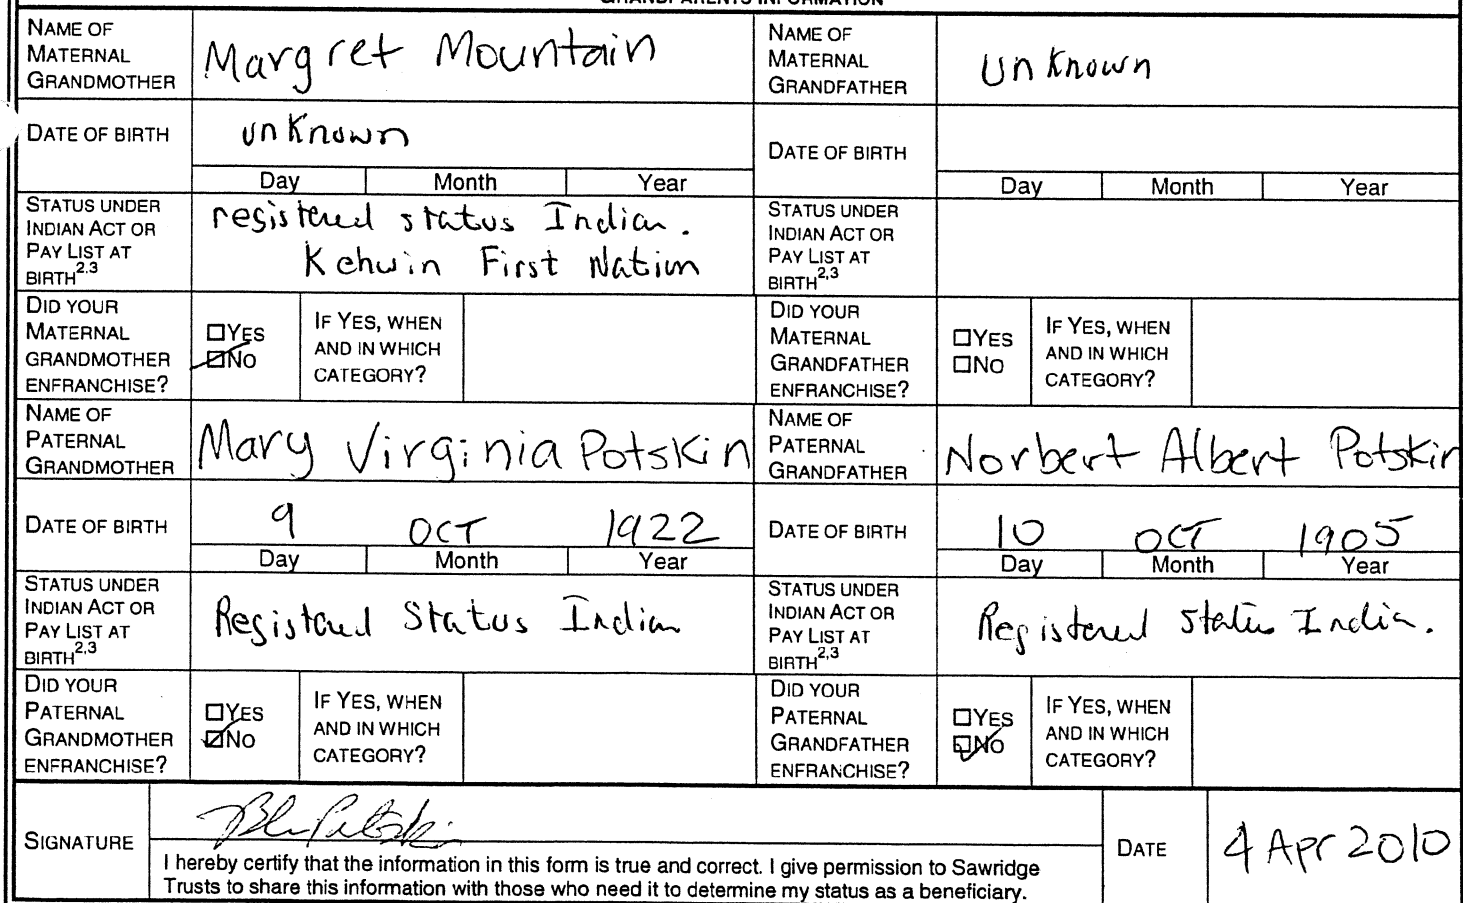 GRANDPARENTS INFORMATION
NAME OF MATERNAL GRANDMOTHER
Margret Mountain
NAME OF MATERNAL GRANDFATHER
Unknown
DATE OF BIRTH
unknown
Day Month Year
DATE OF BIRTH
Day Month Year
STATUS UNDER INDIAN ACT OR PAY LIST AT BIRTH2,3
registered status Indian.
Kehwin First Nation
STATUS UNDER INDIAN ACT OR PAY LIST AT BIRTH2,3
DID YOUR MATERNAL GRANDMOTHER ENFRANCHISE?
☐YES
☑NO
IF YES, WHEN AND IN WHICH CATEGORY?
DID YOUR MATERNAL GRANDFATHER ENFRANCHISE?
☐YES
☐NO
IF YES, WHEN AND IN WHICH CATEGORY?
NAME OF PATERNAL GRANDMOTHER
Mary Virginia Potskin
NAME OF PATERNAL GRANDFATHER
Norbert Albert Potskin
DATE OF BIRTH
9 OCT 1922
Day Month Year
DATE OF BIRTH
10 OCT 1905
Day Month Year
STATUS UNDER INDIAN ACT OR PAY LIST AT BIRTH2,3
Registered Status Indian
STATUS UNDER INDIAN ACT OR PAY LIST AT BIRTH2,3
Registered Status Indian.
DID YOUR PATERNAL GRANDMOTHER ENFRANCHISE?
☐YES
☑NO
IF YES, WHEN AND IN WHICH CATEGORY?
DID YOUR PATERNAL GRANDFATHER ENFRANCHISE?
☐YES
☑NO
IF YES, WHEN AND IN WHICH CATEGORY?
SIGNATURE
I hereby certify that the information in this form is true and correct. I give permission to Sawridge
Trusts to share this information with those who need it to determine my status as a beneficiary.
DATE
4 Apr 2010